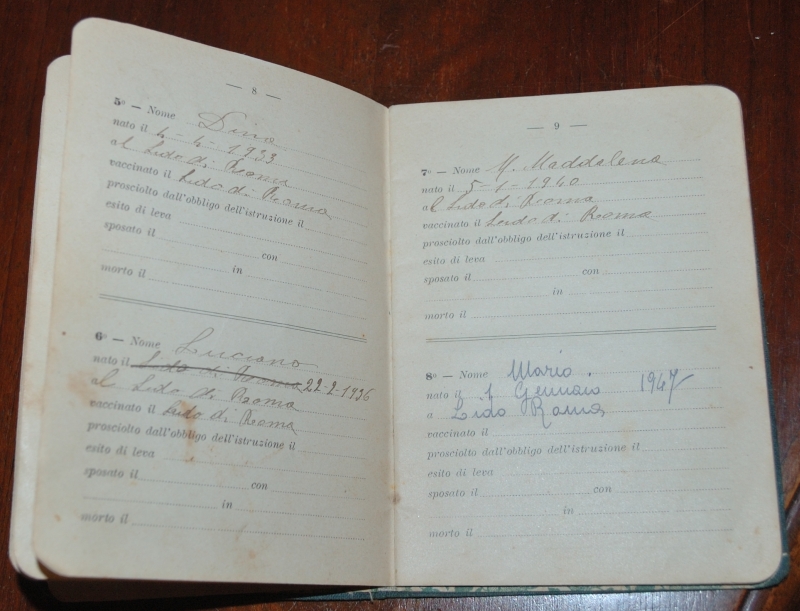 — 8 —
5° — Nome Dino
nato il 4-4-1933
al Lido di Roma
vaccinato il Lido di Roma
prosciolto dall'obbligo dell'istruzione il
esito di leva
sposato il
con
in
morto il
6° — Nome Luciano
nato il Lido di Roma 22-2-1936
al Lido di Roma
vaccinato il Lido di Roma
prosciolto dall'obbligo dell'istruzione il
esito di leva
sposato il con
in
morto il
— 9 —
7° — Nome M. Maddalena
nato il 5-1-1940
al Lido di Roma
vaccinato il Lido di Roma
prosciolto dall'obbligo dell'istruzione il
esito di leva
sposato il con
in
morto il
8° — Nome Mario
nato il 1 Gennaio 1947
a Lido Roma
vaccinato il
prosciolto dall'obbligo dell'istruzione il
esito di leva
sposato il con
in
morto il